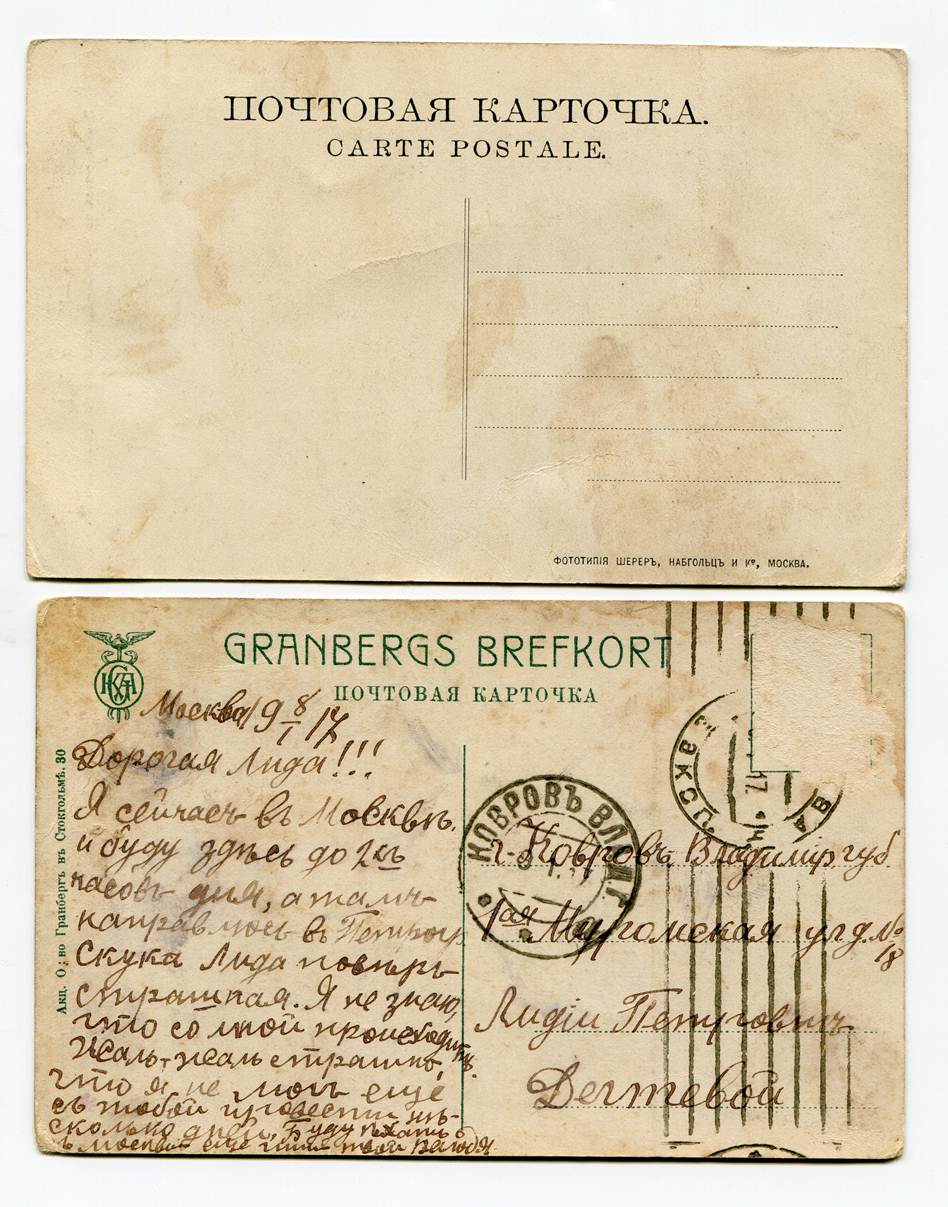 ПОЧТОВАЯ КАРТОЧКА.
CARTE POSTALE.
ФОТОТИПІЯ ШЕРЕРЪ, НАБГОЛЬЦЪ И Кº, МОСКВА.
GRANBERGS BREFKORT
ПОЧТОВАЯ КАРТОЧКА
Акц. О-во Гранбергъ въ Стокгольмѣ. 30
Москва 19 8/I 17
Дорогая Лида!!!
Я сейчасъ въ Москвѣ.
и буду здѣсь до 2хъ
часовъ дня, а тамъ
направлюсь въ Петрогр
Скука Лида повѣрь
страшная. Я не знаю,
что со мной происходитъ.
Жаль, жаль страшно,
что я не могъ еще
съ тобой провести нѣ-
сколько дней, Буду ѣхать
въ Москвѣ еще твой Володя
КОВРОВЪ ВЛАД. Г.
г. Ковровъ, Владимір губ.
1ая Муромская ул д. №
18
Лидіи Петрович
Дегтевой